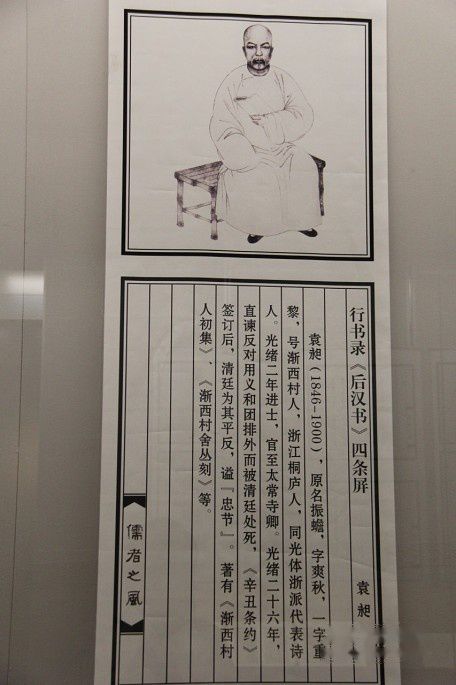 行书录《后汉书》四条屏
袁昶
袁昶(1846-1900),原名振蟾,字爽秋,一字重
黎,号渐西村人,浙江桐庐人,同光体浙派代表诗
人。光绪二年进士,官至太常寺卿。光绪二十六年,
直谏反对用义和团排外而被清廷处死,《辛丑条约》
签订后,清廷为其平反,谥『忠节』。著有《渐西村
人初集》、《渐西村舍丛刻》等。
儒者之风